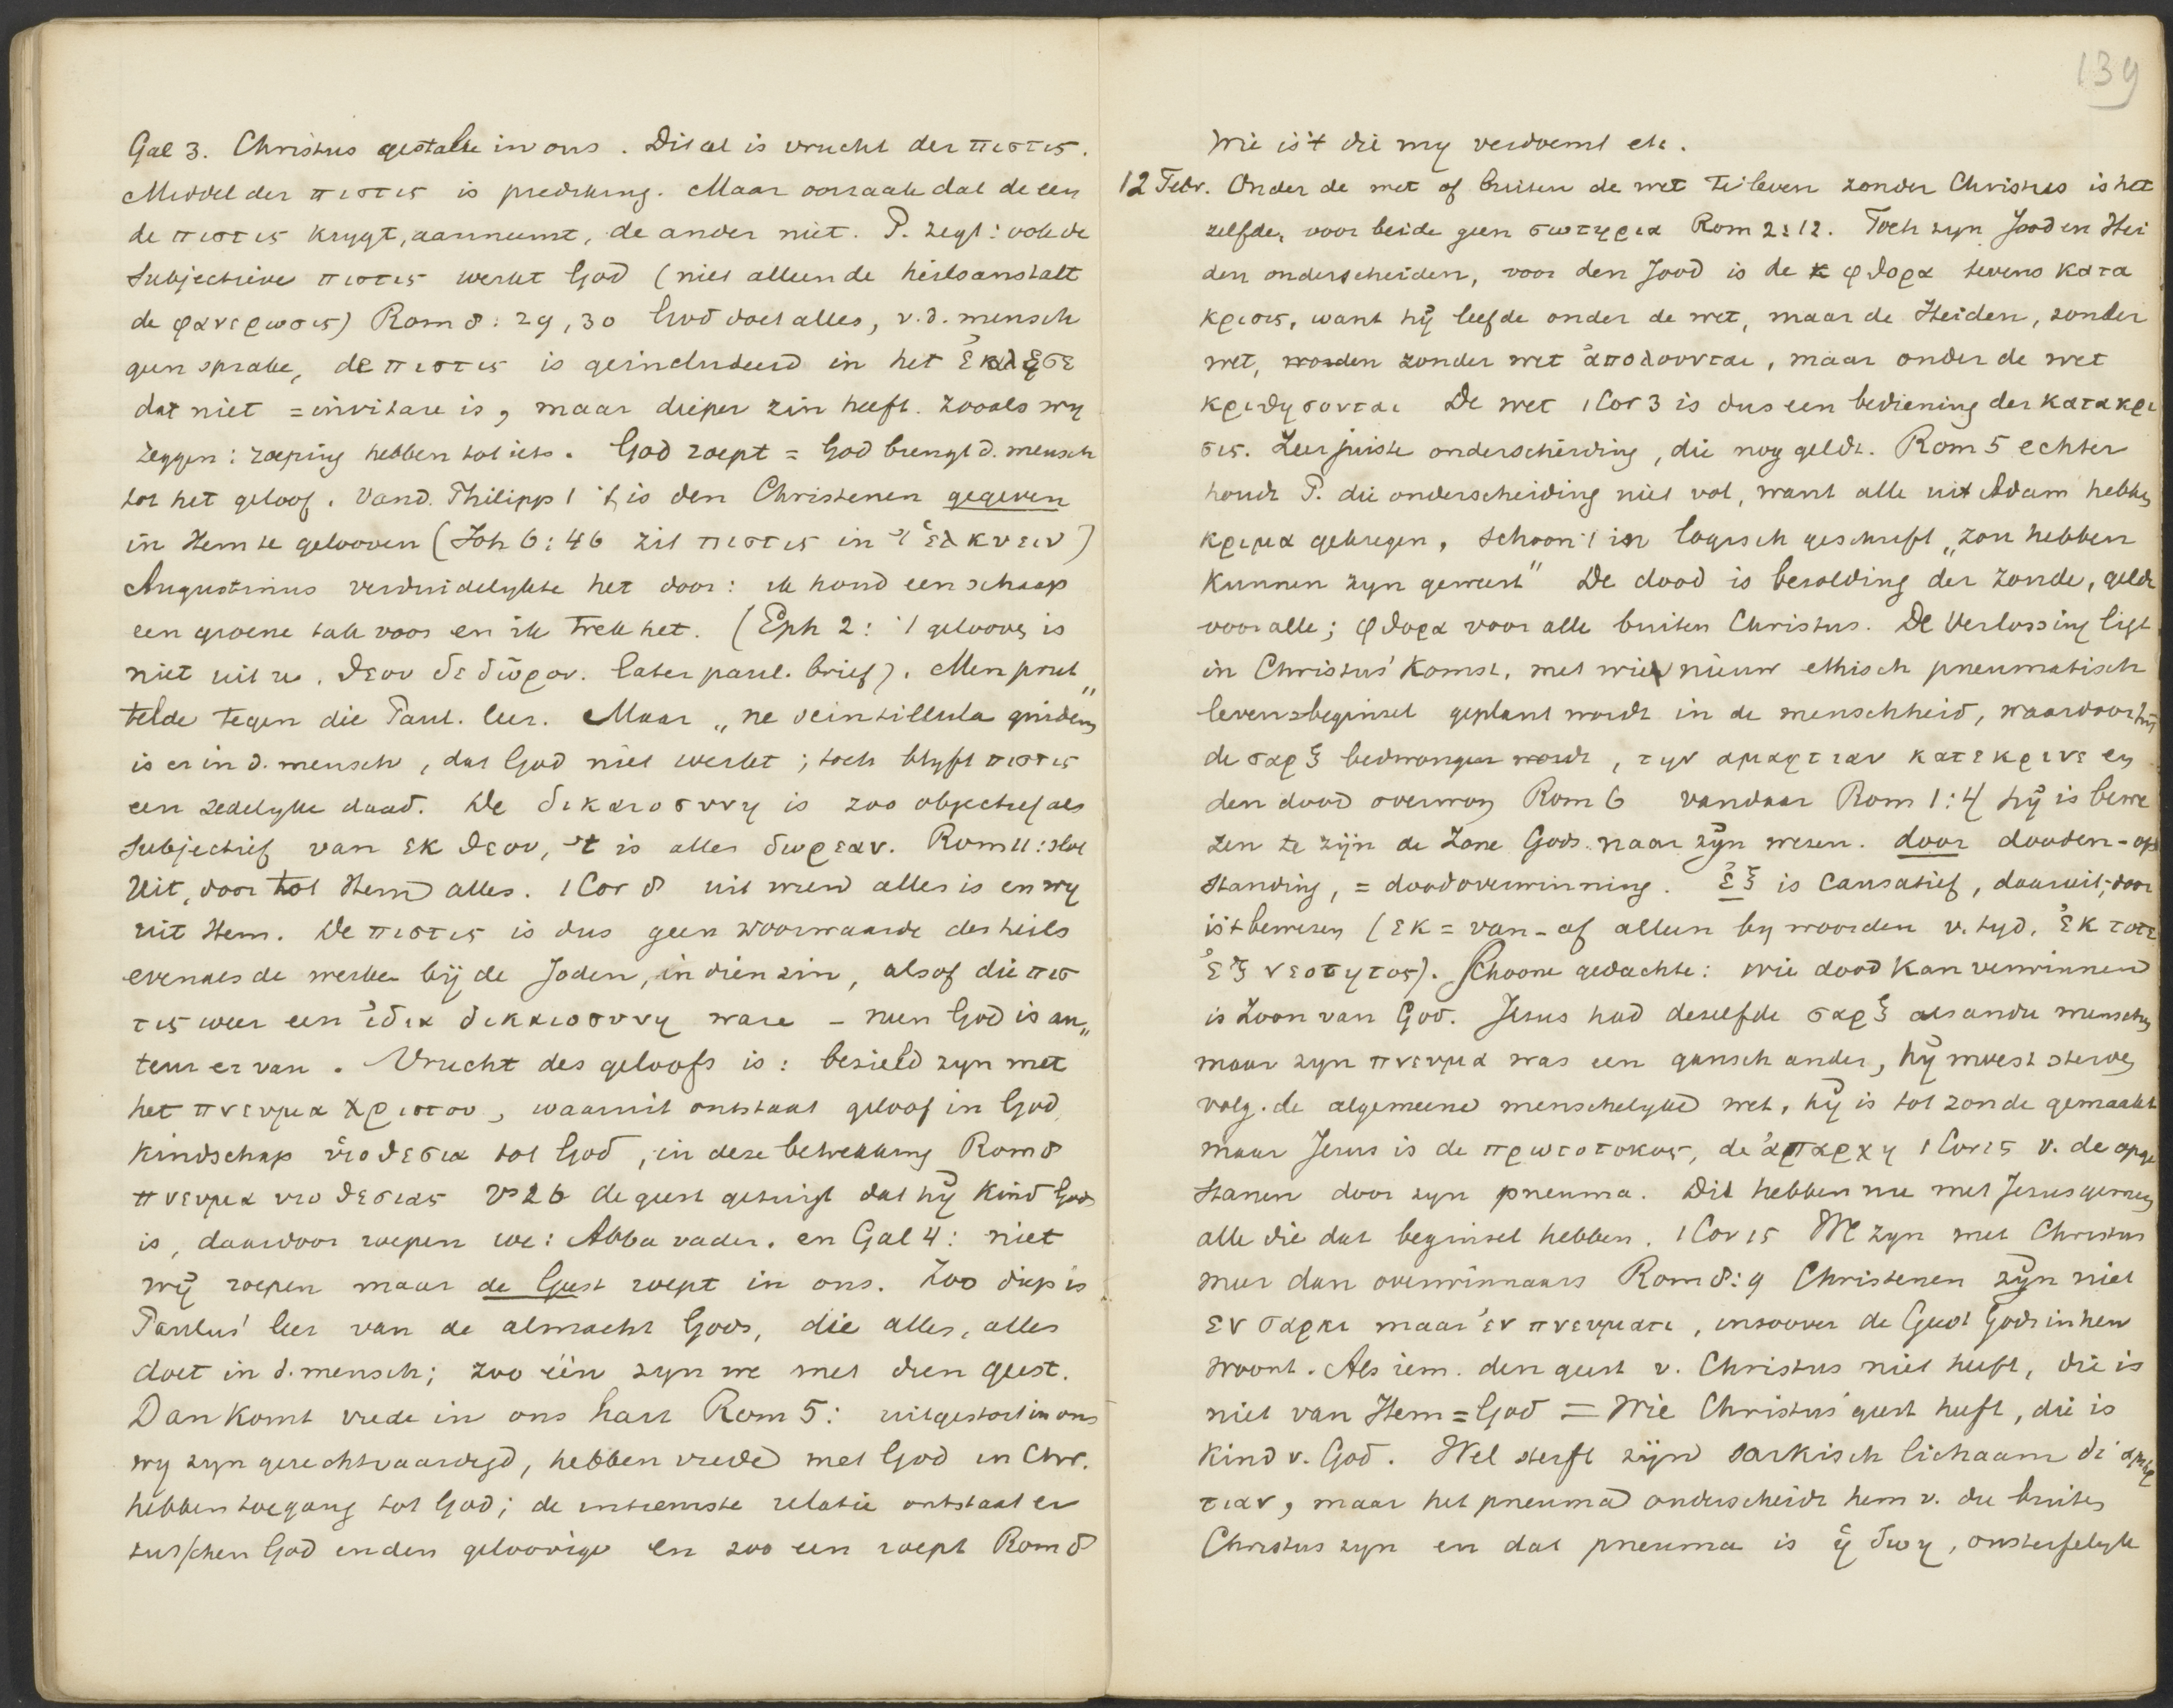 Gal 3. Christus gestalte in ons. Dit al is vrucht der πιστις.
Middel der πιστις is prediking. Maar oorzaak dat de een
de πιστις krygt, aanneemt, de ander niet. P. zegt: ook de
subjectieve πιστις werkt God (niet alleen de heilsanstalt
de φανερωσις) Rom 8:29,30 God doet alles, v.d. mensch
geen sprake, de πιστις is geincludeerd in het ἐκαλεσε
dat niet = invitare is, maar dieper zin heeft. zooals wy
zeggen: roeping hebben tot iets. God roept = God brengt d. mensch
tot het geloof. Vand. Philipp 1 't is den Christenen gegeven
in Hem te gelooven (Joh 6:46 zit πιστις in 't ἑλκυειν)
Augustinus verduidelykte het door: ik houd een schaap
een groene tak voor en ik trek het. (Eph 2: 't geloove is
niet uit u, θεου δε δῶρον. later paul. brief). Men prut„
telde tegen die Paul. leer. Maar „ne scintillula quidem
is er in d. mensch, dat God niet werkt; toch blyft πιστις
een zedelyke daad. De δικαιοσυνη is zoo objectief als
subjectief van εκ θεου, 't is alles δωρεαν. Rom 11: slot
Uit, door tot Hem alles. 1 Cor 8 uit wien alles is en wy
uit Hem. De πιστις is dus geen voorwaarde des heils
evenals de werken bij de Joden, in dien zin, alsof die πισ
τις weer een ἰδια δικαιοσυνη ware – neen God is au„
teur er van. Vrucht des geloofs is: bezield zyn met
het πνευμα χριστου, waaruit ontstaat geloof in God
kindschap υἱοθεσια tot God, in deze betrekking Rom 8
πνευμα υιοθεσιας vs 26 de geest getuigt dat hÿ kind Gods
is, daardoor roepen we: Abba vader. en Gal 4: niet
wÿ roepen maar de Geest roept in ons. Zoo diep is
Paulus' leer van de almacht Gods, die alles, alles
doet in d. mensch; zoo één zyn we met dien geest.
Dan komt vrede in ons hart Rom 5: uitgestort in ons
wy zyn gerechtvaardigd, hebben vrede met God in Chr.
hebben toegang tot God; de intiemste relatie ontstaat er
tusschen God en den geloovige en zoo een roept Rom 8
139
Wie is 't die my verdoemt etc.
12 Febr. Onder de wet of buiten de wet te leven zonder Christus is het
zelfde, voor beide geen σωτηρια Rom 2:12. Toch zyn Jood en Hei
den onderscheiden, voor den Jood is de φθορα tevens κατα
κρισις, want hÿ leefde onder de wet, maar de Heiden, zonder
wet, worden zonder wet ἀπολουνται, maar onder de wet
κριθησονται De wet 1 Cor 3 is dus een bediening der κατακρι
σις. Zeer juiste onderscheiding, die nog geldt. Rom 5 echter
houdt P. die onderscheiding niet vol, want alle uit Adam hebben
κριμα gekregen, schoon 't in logisch geschrift „zou hebben
kunnen zyn geweest" De dood is bezolding der zonde, geldt
voor alle; φθορα voor alle buiten Christus. De Verlossing ligt
in Christus' komst, met wien nieuw ethisch pneumatisch
levensbeginsel geplant wordt in de menschheid, waardoor hij
de σαρξ bedwongen wordt, την αμαρτιαν κατεκρινε en
den dood overwon Rom 6 vandaar Rom 1:4 hÿ is bewe
zen te zijn de Zone Gods naar zÿn wezen. door dooden-op
standing, = doodoverwinning. ἐξ is causatief, daaruit, door
is 't bewezen (εκ = van-af alleen by woorden v. tyd, ἐκ τοτε
ἐξ νεοτητος). Schoone gedachte: wie dood kan verwinnen
is Zoon van God. Jesus had dezelfde σαρξ als andre menschen
maar zyn πνευμα was een gansch ander, hÿ moest sterven
volg. de algemeene menschelyke wet, hÿ is tot zonde gemaakt
maar Jesus is de πρωτοτοκος, de ἀπαρχη 1 Cor 15 v. de opge
stanen door zyn pneuma. Dit hebben nu met Jesus gemeen
alle die dat beginsel hebben. 1 Cor 15 We zyn met Christus
meer dan overwinnaars Rom 8:9 Christenen zÿn niet
εν σαρκι maar ἐν πνευματι, in zoover de Geest Gods in hen
woont. Als iem. den geest v. Christus niet heeft, die is
niet van Hem = God = Wie Christus' geest heeft, die is
kind v. God. Wel sterft zijn sarkisch lichaam δι' αμαρ
τιαν, maar het pneuma onderscheidt hem v. die buiten
Christus zyn en dat pneuma is ἡ ζωη, onsterfelyk